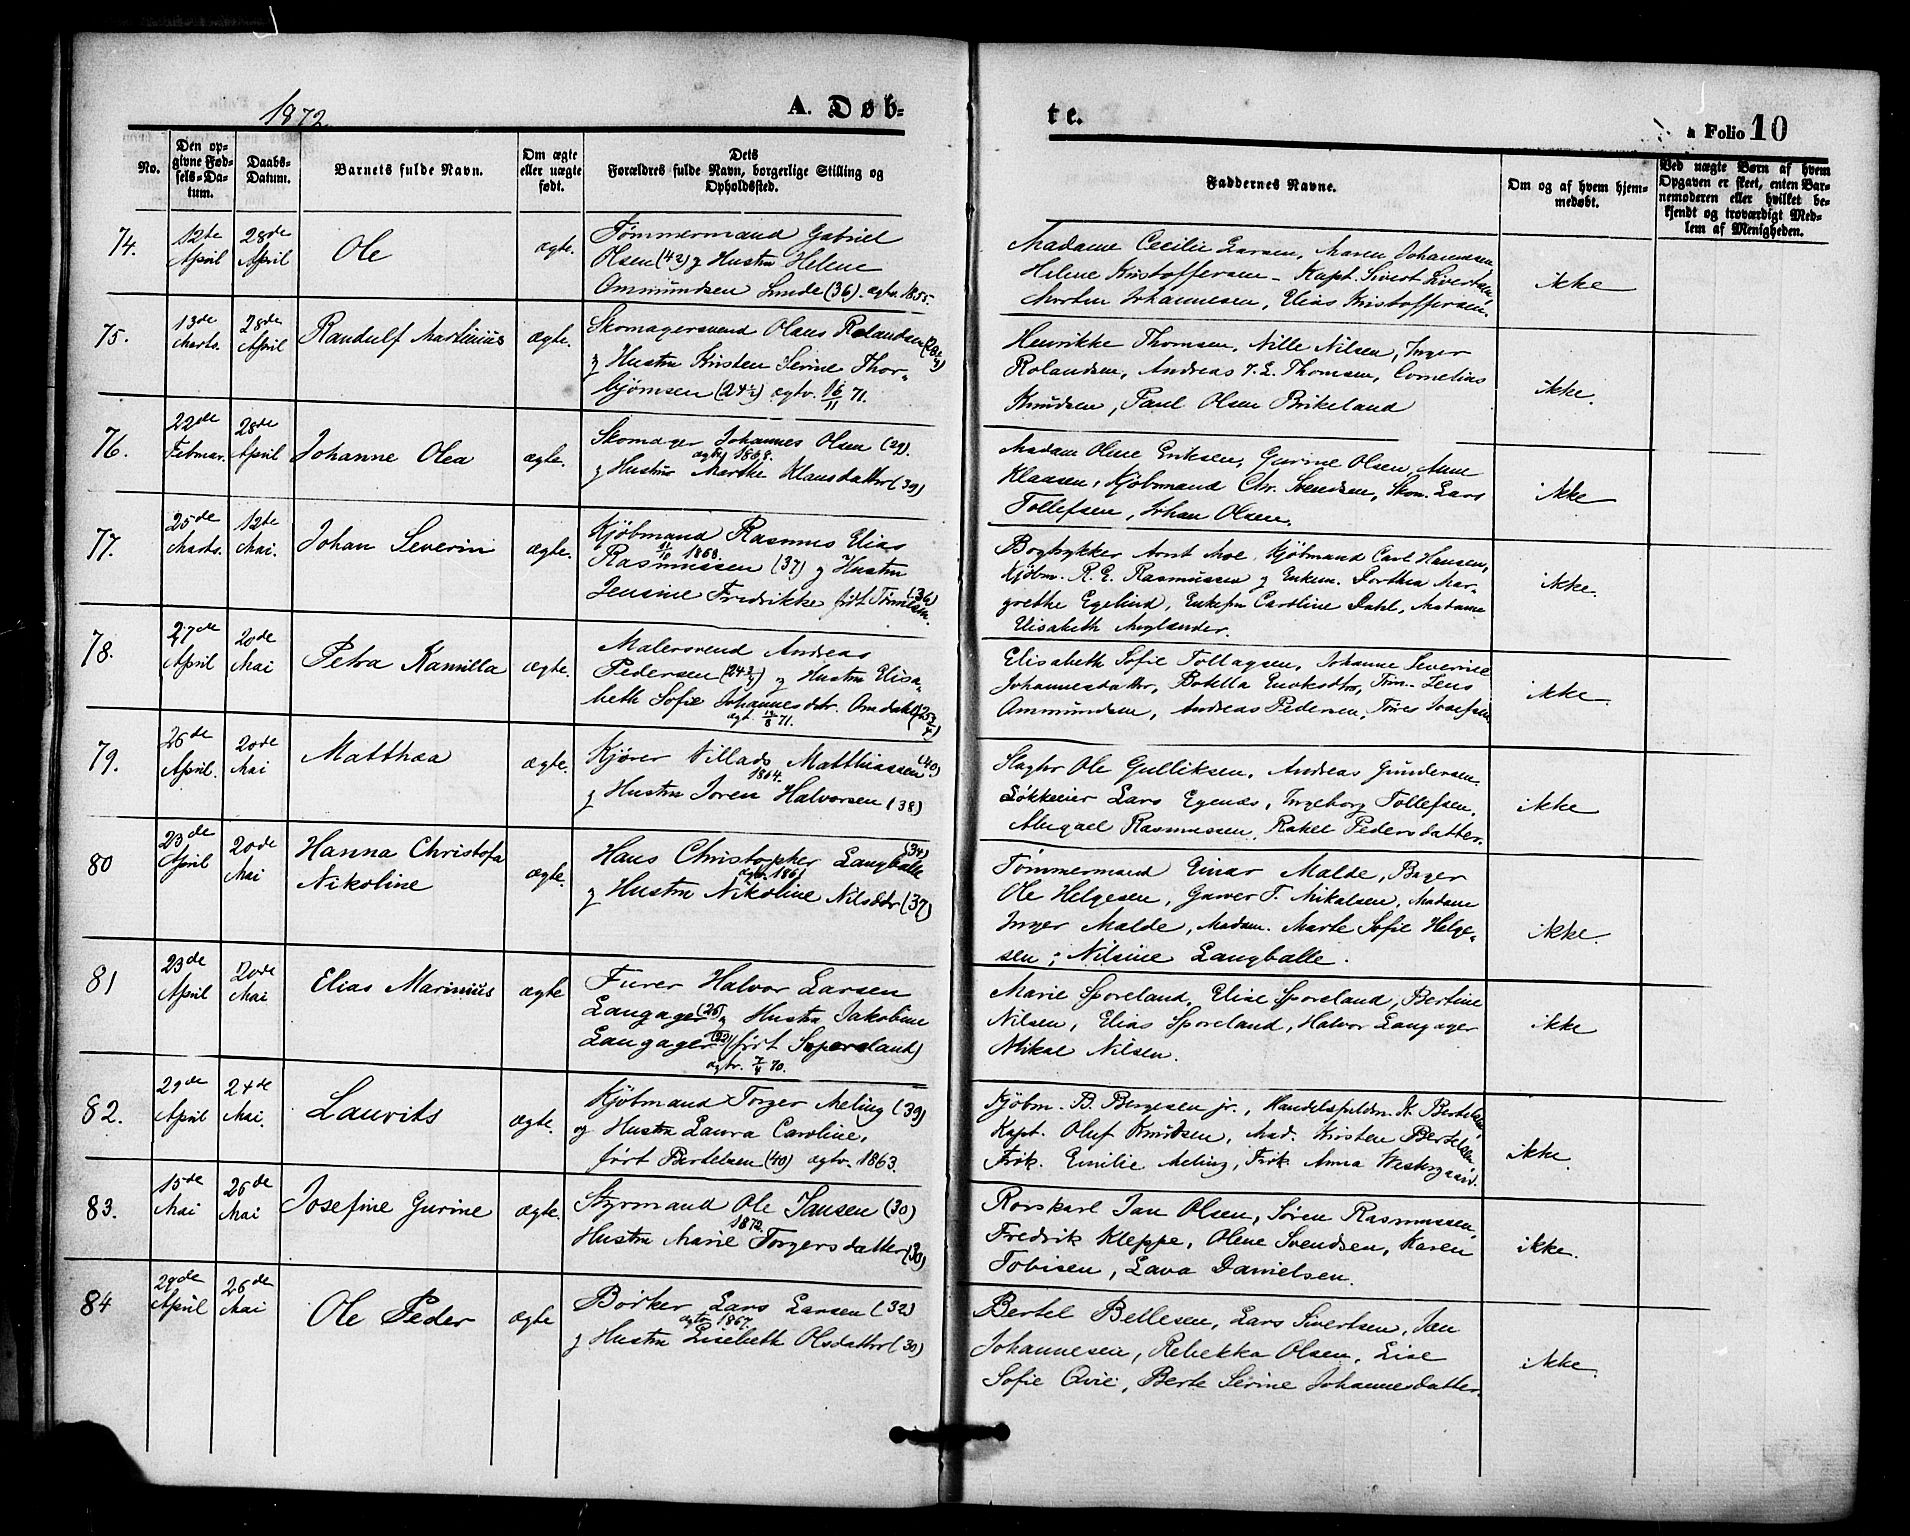 1872.
A. Døb-
te.
a Folio 10
No.
Den op-
givne Fød-
sels-Da-
tum.
Daabs-
Datum.
Barnets fulde Navn.
Om ægte
eller uægte
født.
Dets
Forældres fulde Navn, borgerlige Stilling og
Opholdssted.
Faddernes Navne.
Om og af hvem hjem-
medøbt.
Ved uægte Børn af hvem
Opgaven er skeet, enten Bar-
nemoderen eller hvilket be-
kjendt og troværdigt Med-
lem af Menigheden.
74.
12te
April
28de
April
Ole
ægte.
Tømmermand Gabriel
Olsen (42) og Hustru Helene
Ommundsen Lunde (36). ægtv. 1855.
Madame Cecilie Larsen, Maren Johannesen
Helene Kristoffersen - Kapt. Sivert Sivertsen,
Morten Johannesen, Elias Kristoffersen.
ikke
75.
13de
Marts.
28de
April
Randulf Martinius
ægte.
Skomagersvend Olaus Rolandsen
og Hustru Kristen Serine Thor-
bjørnsen (24½) ægtv. 16/11 71.
Henrikke Thomsen, Nille Nilsen, Inger
Rolandsen, Andreas T. E. Thomsen, Cornelius
Knudsen, Paul Olsen Brikeland
ikke.
76.
22de
Februar.
28de
April
Johanne Olea
ægte.
Skomager Johannes Olsen (29).
ægtv. 1868.
og Hustru Marthe Klausdatter (39)
Madam Olene Eriksen, Gurine Olsen, Anne
Klaasen, Kjøbmand Chr. Svendsen, Skom. Lars
Tollefsen, Johan Olsen.
ikke
77.
25de
Marts.
12te
Mai.
Johan Severin
ægte.
Kjøbmand Rasmus Elias
11/10 1868.
Rasmussen (37) og Hustru
Jensine Fredrikke født Tønnesen. (36)
Bogtrykker Arnt Moe, Kjøbmand Carl Hansen,
Kjøbm. R. E. Rasmussen og Enkem. Dorthea Mar-
grethe Egelund, Enkefru Caroline Dahl, Madame
Elisabeth Auglænder.
ikke.
78.
27de
April
20de
Mai
Petra Kamilla
ægte.
Malersvend Andreas
Pedersen (24¾) og Hustru Elisa-
beth Sofie Johannesdtr. Omdahl (25¾)
ægt. 12/8 71.
Elisabeth Sofie Tollagsen, Johanne Severine
Johannesdatter, Botella Enoksdtr, Tøm. Jens
Ommundsen, Andreas Pedersen, Tøres Josefsen
ikke.
79.
26de
April.
20de
Mai
Matthæa
ægte.
Kjører Villads Matthiassen (40)
1864.
og Hustru Joren Halvorsen (38)
Slagter Ole Gulliksen, Andreas Gundersen.
Løkkeier Lars Egenæs, Ingeborg Tollefsen,
Abigael Rasmussen, Rakel Pedersdatter.
ikke
80
23de
April
20de
Mai
Hanna Christofa
Nikoline
ægte.
Hans Christopher Langballe (34)
ægtv. 1861
og Hustru Nikoline Nilsdtr (37)
Tømmermand Einar Malde, Bager
Ole Helgesen, Garver T. Mikalsen, Madame
Inger Malde, Madam. Marte Sofie Helge-
sen; Nilsine Langballe.
ikke.
81
23de
April
20de
Mai
Elias Marinius
ægte
Furer Halvor Larsen
Langager (26) og Hustru Jakobine
Langager (22) (født Soperland)
ægtv. 7/4 70.
Marie Sporeland, Elise Sporeland, Bertine
Nilsen, Elias Sporeland, Halvor Langager
Mikal Nilsen.
ikke
82.
29de
April
24de
Mai.
Laurits
ægte.
Kjøbmand Torger Meling (39)
og Hustru Laura Caroline,
født Bertelsen (40) ægtv. 1863.
Kjøbm. B. Bergesen jr., Handelsfuldm. K. Bertelsen,
Kapt. Oluf Knudsen, Mad. Kirsten Bertelsen
Frøk. Emilie Meling, Frøk. Anna Westergaard.
ikke.
83.
15de
Mai
26de
Mai
Josefine Gurine
ægte.
Styrmand Ole Jansen (30)
1872.
Hustru Marie Torgersdatter (30)
Rorskarl Jan Olsen, Søren Rasmussen,
Fredrik Kleppe, Olene Svendsen, Karen
Tobisen, Lava Danielsen.
ikke.
84
29de
April
26de
Mai
Ole Peder
ægte
Børker Lars Larsen (32)
ægtv. 1867.
og Hustru Lisebeth Olsdatter (30)
Bertel Bellesen, Lars Sivertsen, Jan
Johannesen, Rebekka Olsen, Lise
Sofie Qvie, Berte Serine Johannesdatter.
ikke.